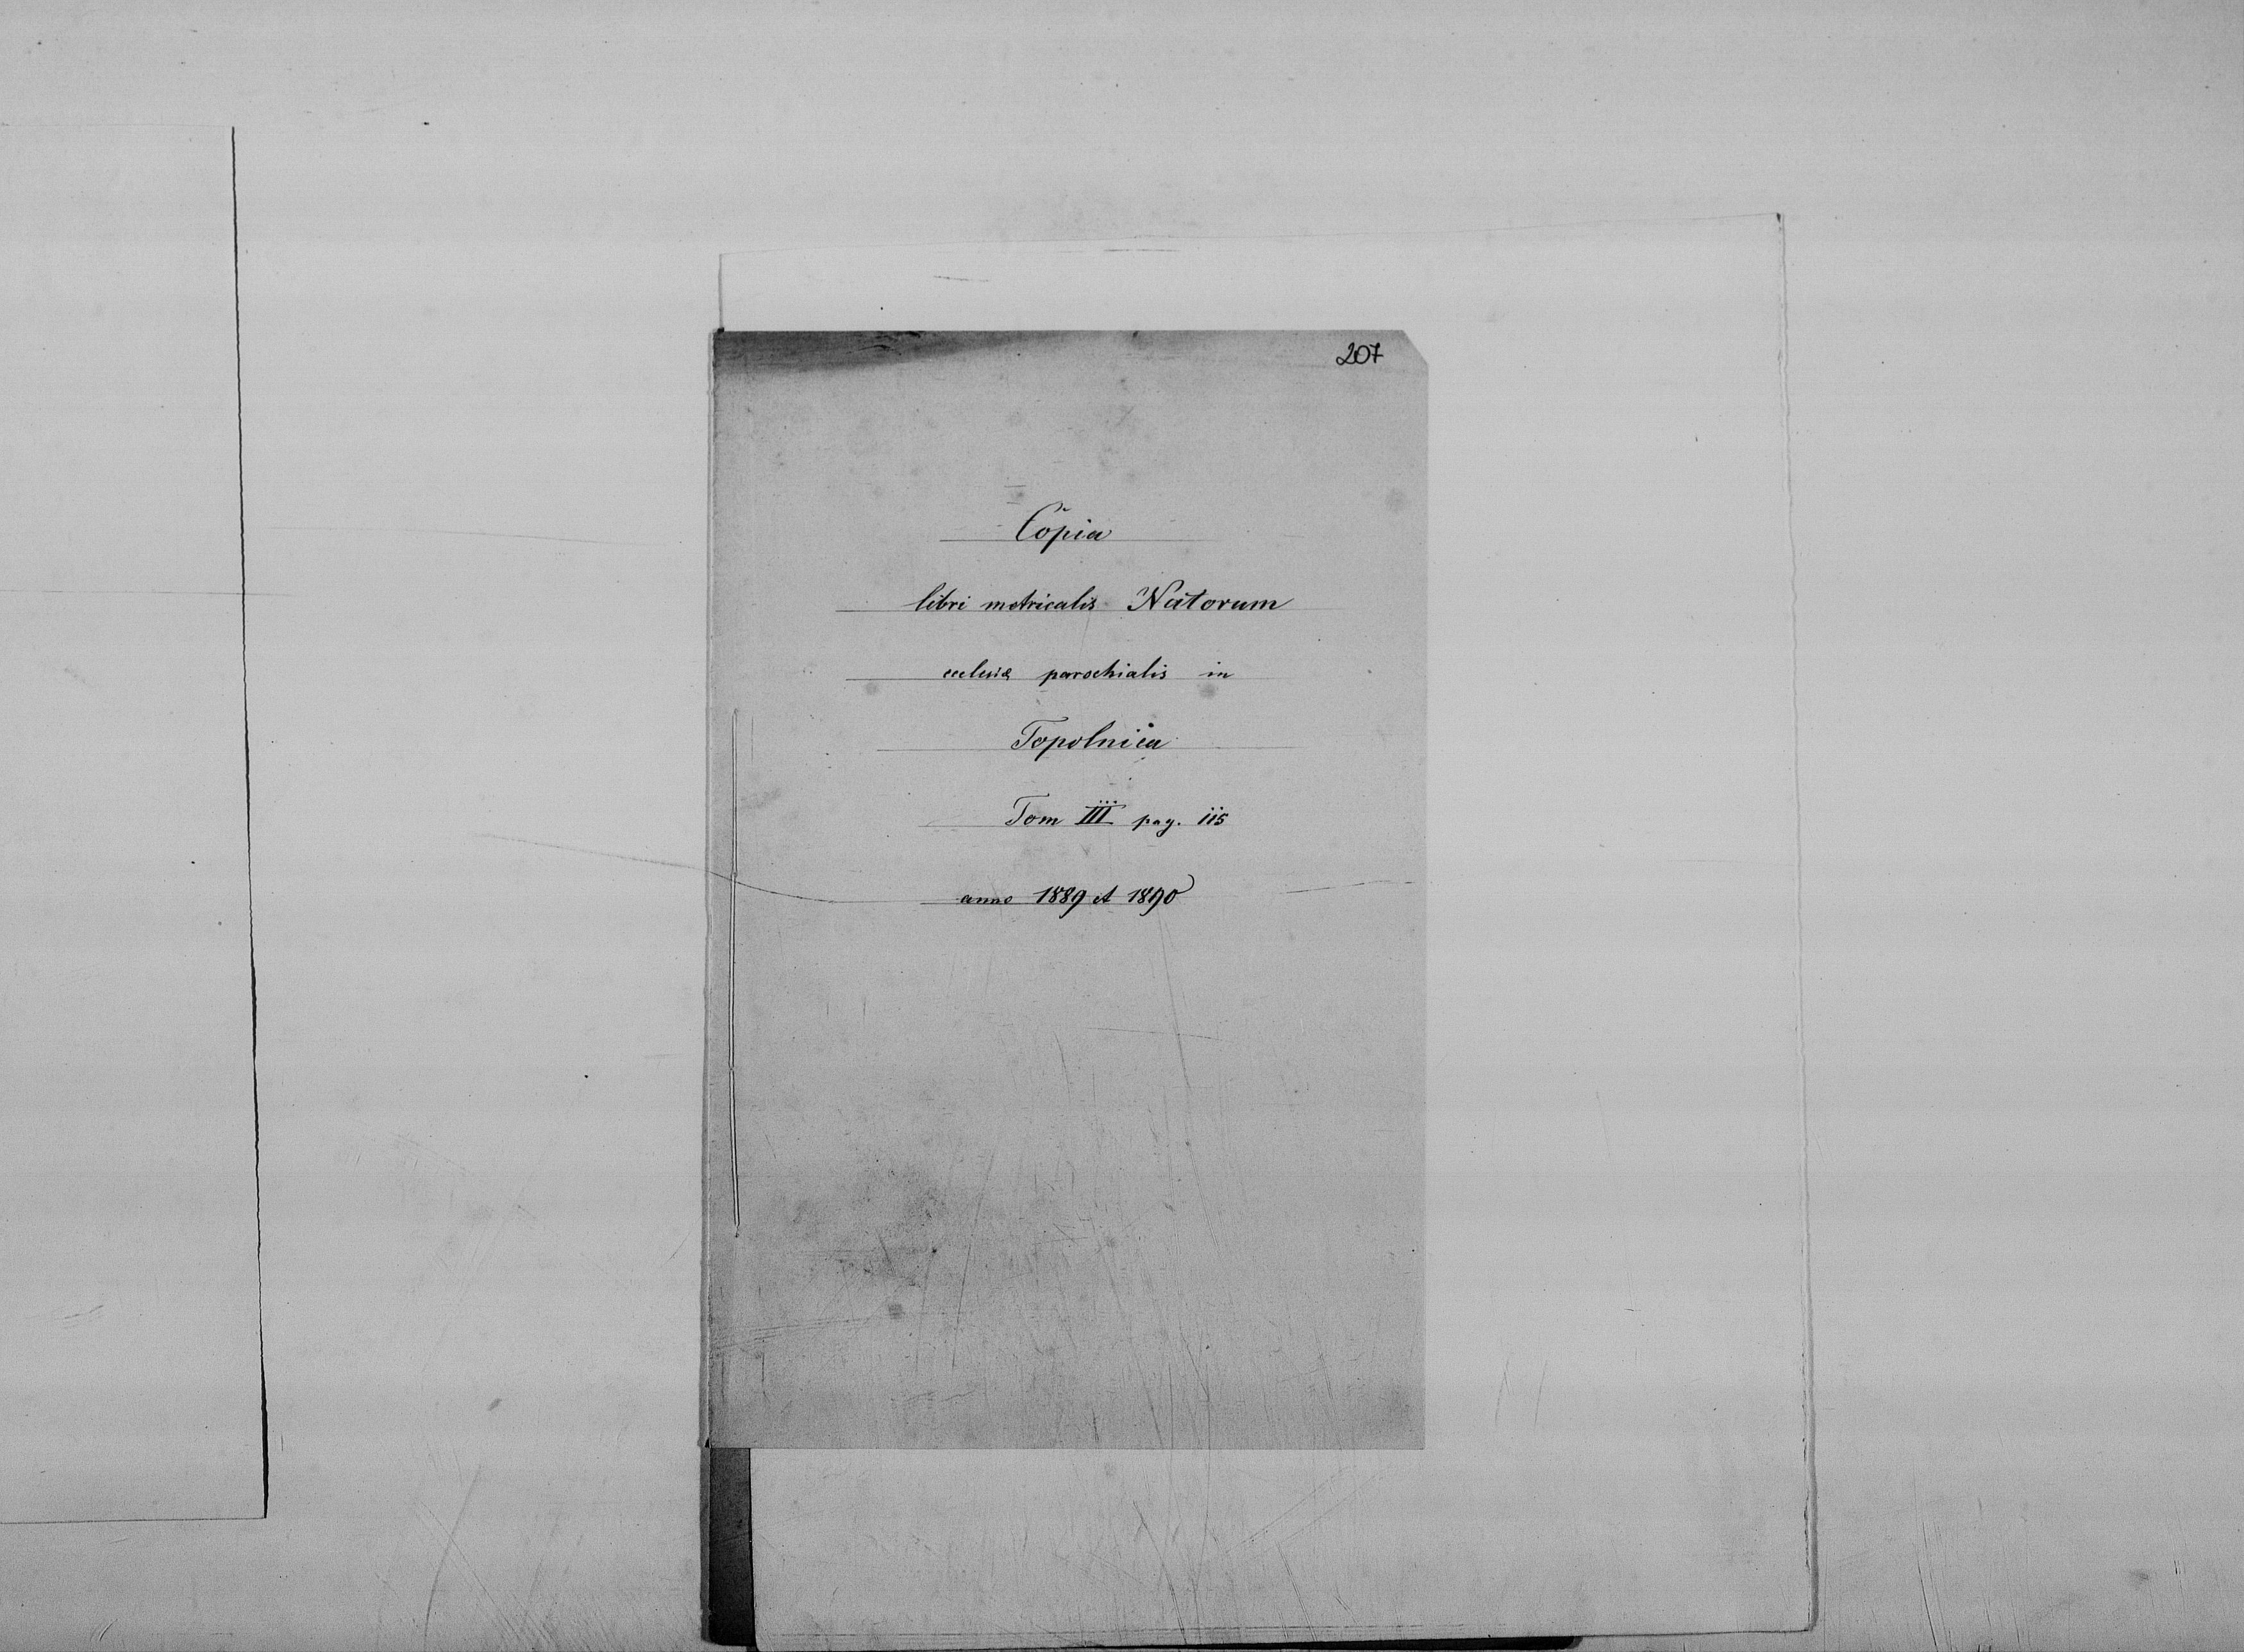 207
Copia
libri metricalis Natorum
ecclesiæ parochialis in
Topolnica
Tom III pag. 115
anno 1889 et 1890